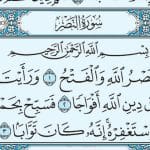 سُورَةُ النَّصْرِ
بِسْمِ اللَّهِ الرَّحْمَٰنِ الرَّحِيمِ
صْرُ اللَّهِ وَالْفَتْحُ ١ وَرَأَيْتَ
دِينِ اللَّهِ أَفْوَاجًا ٢ فَسَبِّحْ بِحَمْ
سْتَغْفِرْهُ إِنَّهُ كَانَ تَوَّابًا ٣